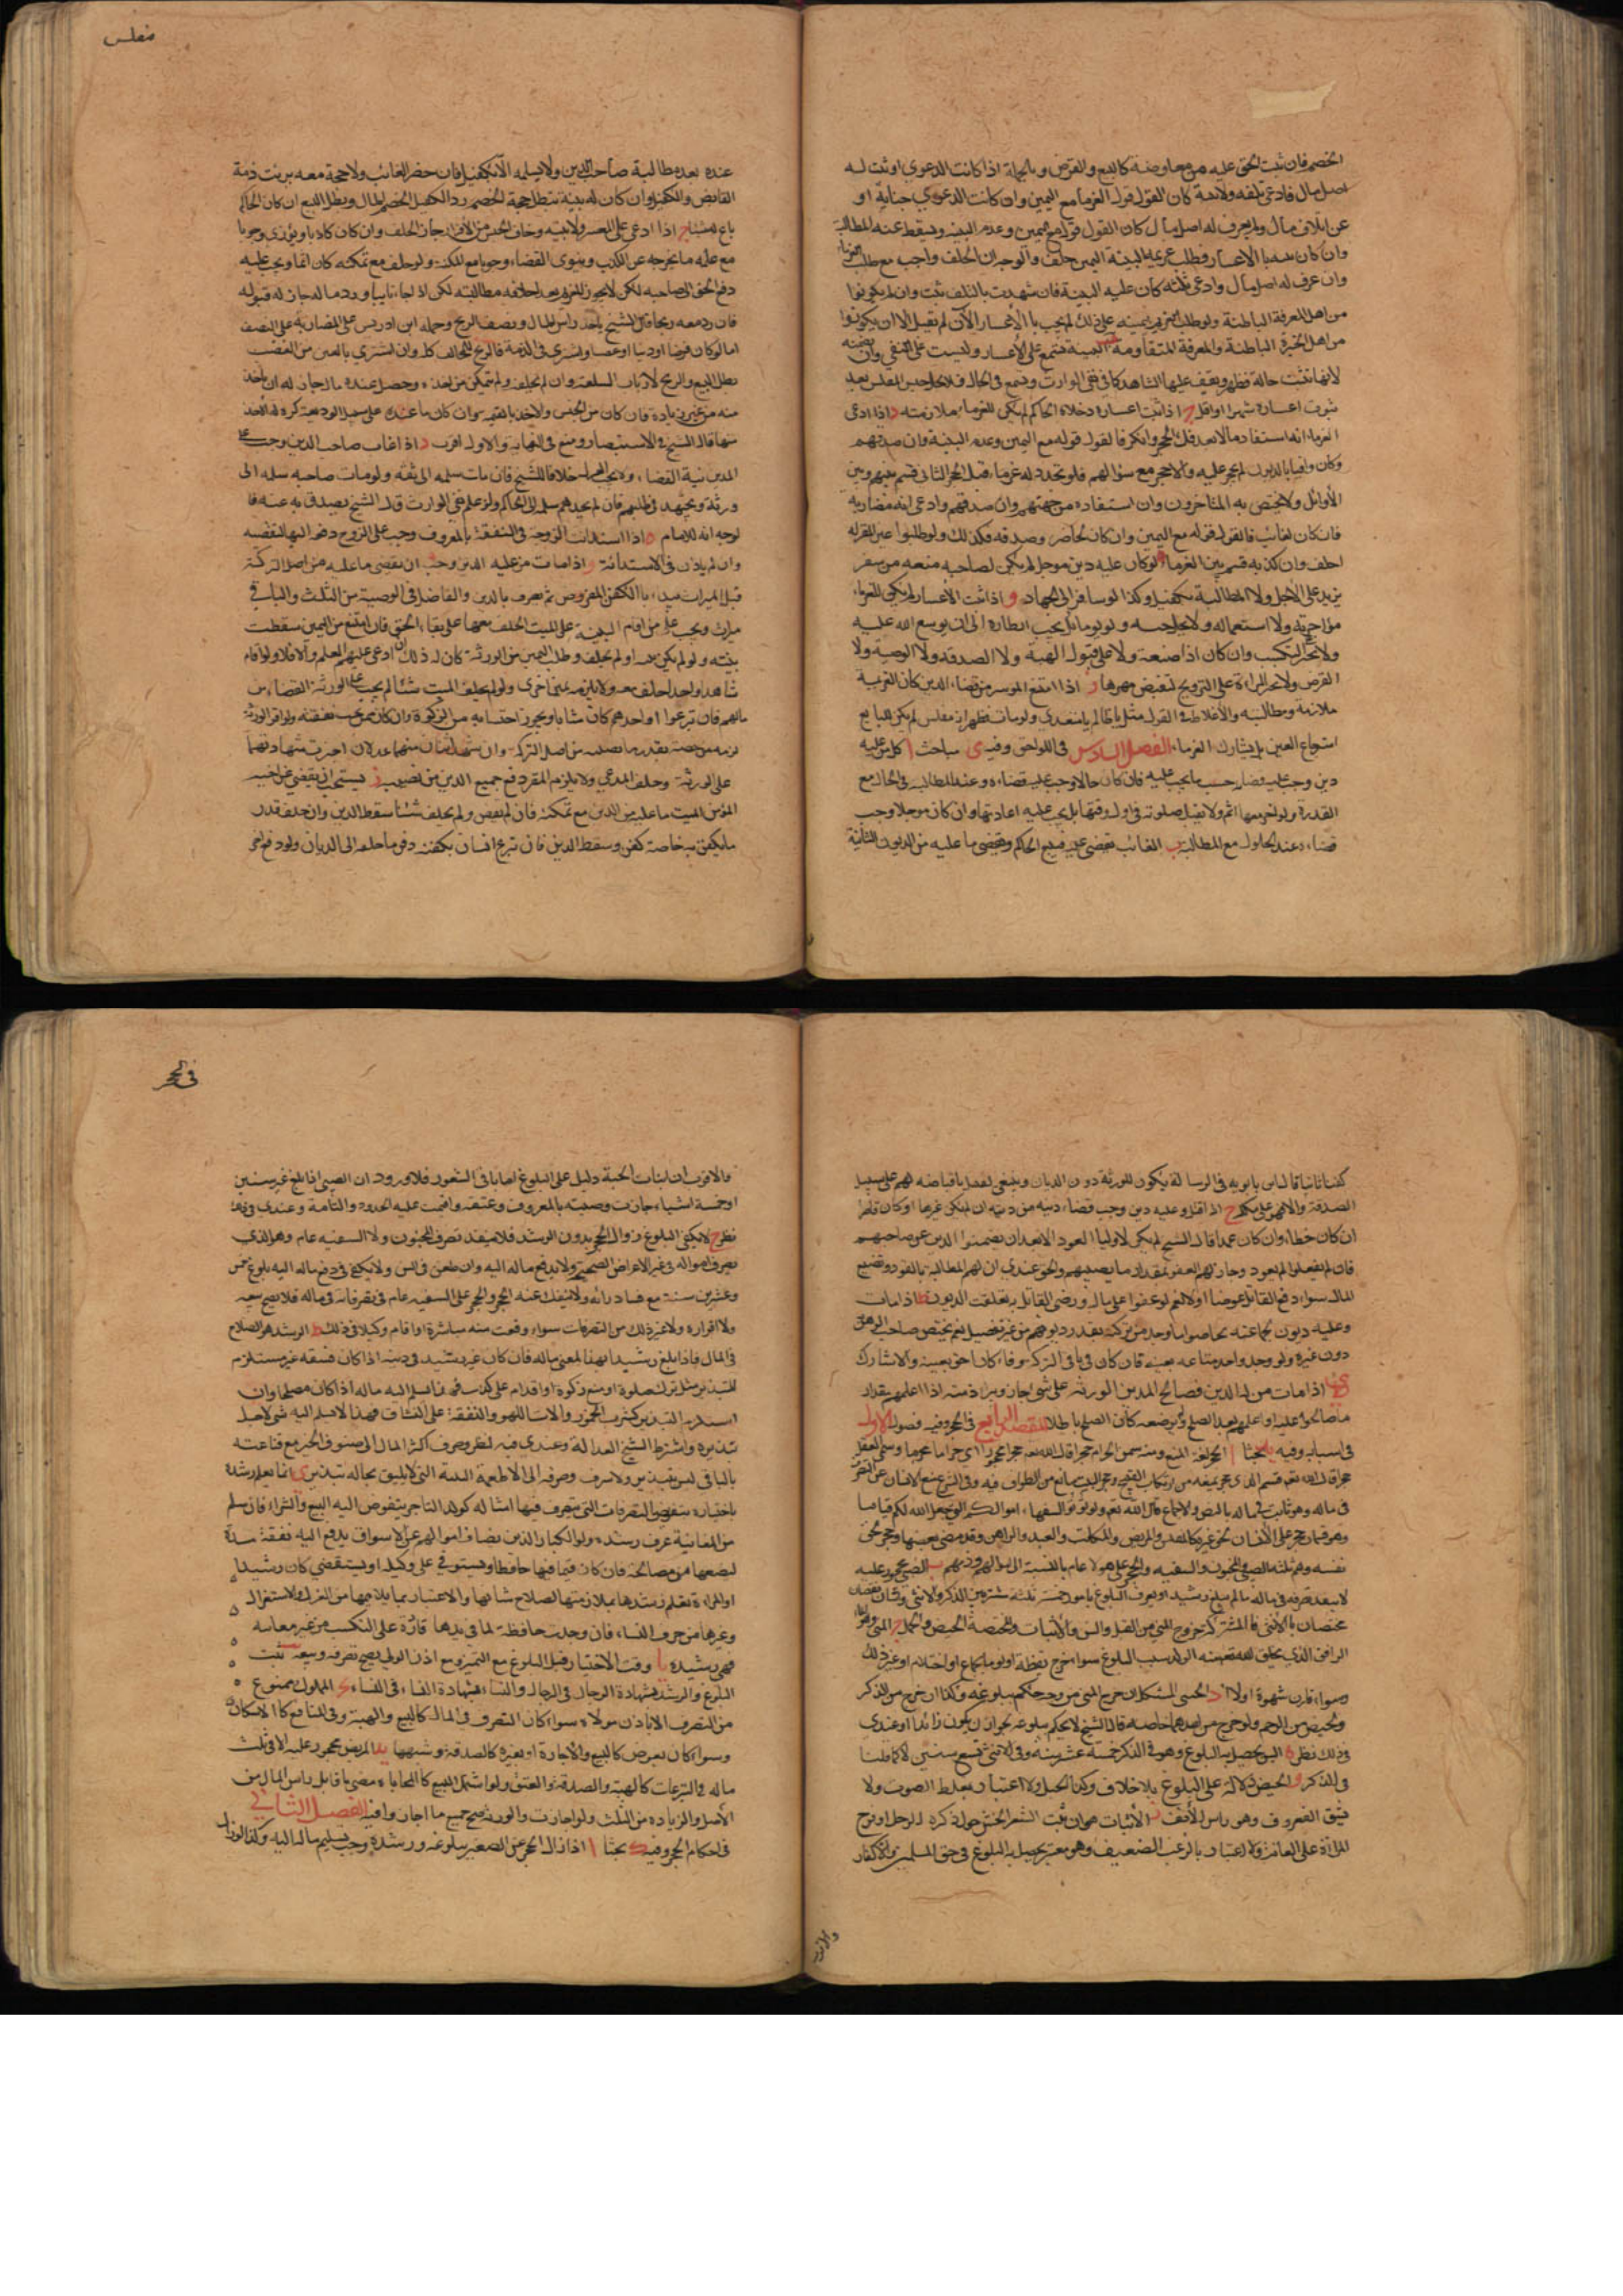 الخصم فان ثبت الحق عليه من معاوضة كالبيع والقرض وبالجملة اذا كانت الدعوى او ثبت له
اصل مال فادعى تلفه ولا بينة كان القول قول الغرماء مع اليمين وان كانت الدعوى جناية او
عن اتلاف مال ولم يعرف له اصل مال كان القول قوله مع اليمين وعدم البينة وسقط عنه المطالبة
وان كان بينة بالاعسار وطلب غريمه اليمين حلف والوجه ان الحلف واجب مع طلب الغرماء
وان عرف له اصل مال وادعى تلفه كان عليه البينة فان شهدت بالتلف ثبت وان لم يكونوا
من اهل المعرفة الباطنة ولو طلب الغريم يمينه على ذلك لم يجب اما الاعسار الآن لم تقبل الا ان يكونوا
من اهل الخبرة الباطنة والمعرفة المتقادمة البينة تسمع على الاعسار وليست على النفي وان تضمنته
لانها تثبت حالة تظهر ويقف عليها الشاهد كما في نفي الوارث وتسمع في الحال فلا يحل حبس المفلس بعد
ثبوت اعساره شهرا او اقل ج اذا ثبت اعساره وخلاه الحاكم لم يكن للغرماء ملازمته د اذا ادعى
الغرماء انه استفاد مالا بعد فك الحجر وانكر فالقول قوله مع اليمين وعدم البينة وان صدقهم
وكان وافيا بالديون لم يحجر عليه والا حجر مع سؤالهم فلو تجدد له غرماء قبل الحجر الثاني قسم بينهم وبين
الاوائل ولا يختص به المتاخرون وان استفاده من جهتهم وان صدقهم وادعى انه مضاربة
فان كان لغائب فالقول قوله مع اليمين وان كان لحاضر وصدقه فكذلك ولو طلبوا يمين المقر له
احلف وان كذبه قسم بين الغرماء ه لو كان عليه دين موجل لم يكن لصاحبه منعه من سفر
يزيد على الاجل ولا المطالبة بكفيل وكذا لو سافر الى الجهاد و اذا ثبت الاعسار لم يكن للغرماء
مؤاجرته ولا استعماله ولا يحل حبسه ولو يوما بل يجب انظاره الى ان يوسع الله عليه
ولا يجبر للتكسب وان كان ذا صنعة ولا على قبول الهبة ولا الصدقة ولا الوصية ولا
القرض ولا تجبر المراة على التزويج لتقبض مهرها ز اذا امتنع الموسر من قضاء الدين كان لغريمه
ملازمته ومطالبته والاغلاظ في القول مثل يا ظالم يا متعدي ولو مات فظهر انه مفلس لم يكن للبايع
استرجاع العين بل يشارك الغرماء الفصل السادس في اللواحق وفيه ى مباحث ا كل من عليه
دين وجب عليه قضاؤه حسب ما يجب عليه فان كان حالا وجب عليه قضاءه وعند المطالبة في الحال مع
القدرة ولو اخر معها اثم ولا تقبل صلوته في اول وقتها بل يجب عليه اعادتها وان كان موجلا وجب
قضاءه عند الحلول مع المطالبة ب الغائب يقضي عنه فيبيع الحاكم ويقضي ما عليه من الديون الثابتة
مفلس
عنده بعد مطالبة صاحب الدين ولا يسلمه الا بكفيل فان حضر الغائب ولا حجة معه برئت ذمة
القابض والكفيل وان كان له بينة تبطل حجة الخصم رد الكفيل الخصم المال وبطل البيع ان كان الحاكم
باع له شيئا ج اذا ادعى على المعسر ولا بينة وخاف الحبس من الاقرار جاز الحلف وان كان كاذبا ويوري وجوبا
مع علمه ما يخرجه عن الكذب وينوي القضاء وجوبا مع المكنة ولو حلف مع تمكنه كان اثما ويجب عليه
دفع الحق الى صاحبه لكن لا يجوز للغريم بعد احلافه مطالبته لكن اذا جاء تايبا ورد ماله جاز له قبوله
فان رد معه ربحا قال الشيخ ياخذ راس المال ونصف الربح وحمله ابن ادريس على المضاربة على النصف
اما لو كان قرضا او دينا او غصبا واشترى في الذمة فالربح للحالف كله وان اشترى بالعين من الغصب
بطل البيع والربح لارباب السلعة وان لم يحلفه ولم يتمكن من اخذه وحصل عنده مال جاز له ان ياخذ
منه من غير زيادة فان كان من الجنس والا اخذ بالقيمة وان كان ما عنده على سبيل الوديعة كره له الاخذ
منها قاله الشيخ في الاستبصار ومنع في النهاية والاول اقرب د اذا غاب صاحب الدين وجب على
المدين نية القضاء ولا يجب العزل خلافا للشيخ فان مات سلمه الى ثقة ولو مات صاحبه سلمه الى
ورثته ويجتهد في طلبهم فان لم يجدهم سلمه الى الحاكم ولو علم نفي الوارث قال الشيخ يصدق به عنه فا
لوجه انه للامام ه اذا استدانت الزوجة في النفقة بالمعروف وجب على الزوج دفعه اليها لتقضيه
وان لم ياذن في الاستدانة و اذا مات من عليه الدين وجب ان يقضى ما عليه من اصل التركة
قبل الميراث يبداء بالكفن المفروض ثم يصرف بالدين والفاضل في الوصية من الثلث والباقي
ميراث ويجب على من اقام البينة على الميت الحلف معها على بقاء الحق فان امتنع من اليمين سقطت
بينته ولو لم يكن بينة او لم يحلف وطلب اليمين من الورثة كان له ذلك ان ادعى عليهم العلم والا فلا ولو اقام
شاهدا واحدا حلف معه ولا يلزمه يمين اخرى ولو لم يخلف الميت شيئا لم يجب على الورثة القضاء من
مالهم فان تبرعوا او احدهم كان مثابا ويجوز احتسابه من الزكوة وان كان ممن يجب نفقته ولو اقر الورثة
لزمه من حصته بقدر ما يصيبه من اصل التركة وان شهد اثنان منهما عدلان اجيزت شهادتهما
على الورثة وحلف المدعي ولا يلزم المقر دفع جميع الدين من نصيبه ز يستحب ان يقضي عن اخيه
المؤمن الميت ما عليه من الدين مع تمكنه فان لم يقض ولم يخلف شيئا سقط الدين وان خلف قدر
ما يكفن به خاصة كفن وسقط الدين فان تبرع انسان بكفنه دفع ما خلفه الى الديان ولو دفع اخر
كفنا ثانيا قال ابن بابويه في الرسالة يكون للورثة دون الديان وينبغي لعمل باقباضه لهم على سبيل
الصدقة والا فهو على ملكه ح اذا قتل وعليه دين وجب قضاء دينه من ديته ان لم يكن غيرها او كان قاصرا
ان كان خطاء وان كان عمدا قال الشيخ لم يكن لاوليائه القود الا بعد ان يضمنوا الدين عن صاحبهم
فان لم يفعلوا لم يقود وجاز لهم العفو بمقدار ما يصيبهم والحق عندي ان لهم المطالبة بالقود وتضييع
المال سواء دفع القاتل عوضا او لا نعم لو عفوا على مال ورضي القاتل به تعلقت الديون ط اذا مات
وعليه ديون لجماعة تحاصوا ما وجد من تركته بقدر ديونهم من غير تفضيل نعم يختص صاحب الرهن
دون غيره ولو وجد واحد متاعه بعينه فان كان في باقي التركة وفاء كان احق بعينه والا شارك
ى اذا مات من له الدين فصالح المدين الورثة على شيء جاز وبراءة ذمته اذا اعلمهم بقدار
ما صالحوا عليه او اعلمهم بعد الصلح ولو وضعه كان الصلح باطلا المقصد الرابع في الحجر وفيه فصول الاول
في اسبابه وفيه يد بحثا ا الحجر لغة المنع ومنه سمي الحرام حجرا قال الله تعالى حجرا محجورا اي حراما محرما وسمي العقل
حجرا قال الله تعالى قسم لذي حجر لمنعه من ارتكاب القبيح وحجر البيت مانع من الطواف فيه وفي الشرع منع الانسان عن التصرف
في ماله وهو ثابت في ماله بالنص والاجماع قال الله تعالى ولا تؤتوا السفهاء اموالكم التي جعل الله لكم قياما
وهو قسمان حجر على الانسان لحق غيره كالمفلس والمريض والمكاتب والعبد والراهن وقد مضى بعضها وحجر لحق
نفسه وهم ثلثة الصبي والمجنون والسفيه والحجر على هؤلاء عام بالنسبة الى اموالهم وذممهم ب الصبي محجور عليه
لا ينفذ تصرفه في ماله ما لم يبلغ رشيدا ويعرف البلوغ بامور خمسة ثلثة مشتركة بين الذكر والانثى وشيئان يختصان
مختصان بالانثى فالمشتركة خروج المني من القبل والسن والانبات والمختصة الحيض والحمل ج المني وهو الماء
الدافق الذي يخلق الله تعالى منه الولد سبب البلوغ سواء خرج يقظة او نوما بجماع او احتلام او غير ذلك
وسواء قارن شهوة او لا د الخنثى المشكل ان خرج المني من فرجيه حكم ببلوغه وكذا ان خرج من الذكر
وحيض من الرحم ولو خرج من احدهما خاصة قال الشيخ لا يحكم ببلوغه لجواز ان يكون زائدا وعندي
في ذلك نظر ه السن يحصل به البلوغ وهو في الذكر خمسة عشر سنة وفي الانثى تسع سنين لا كما قلنا
في الذكر و الحيض دلالة على البلوغ بلا خلاف وكذا الحبل ولا اعتبار بغلظ الصوت ولا
شق الغضروف وهو راس الانف ز الانبات هو ان ينبت الشعر الخشن حول ذكره الرجل او فرج
المراة على العانة ولا اعتبار بالزغب الضعيف وهو معتبر يحصل به البلوغ في حق المسلمين والكفار
والاقرب
في الحجر
والاقرب ان انبات اللحية دليل على البلوغ اما باقي الشعور فلا وروى ان الصبي اذا بلغ عشر سنين
او خمسة اشبار جازت وصيته بالمعروف وعتقه واقيمت عليه الحدود التامة وعندي فيه
نظر ح لا يكفي البلوغ في زوال الحجر بدون الرشد فلا ينفذ تصرف المجنون ولا السفيه عام وهو الذي
يصرف امواله في غير الاغراض الصحيحة ولا يدفع ماله اليه وان طعن في السن ولا يكفي في دفع ماله اليه بلوغ خمس
وعشرين سنة مع فساد رائه ولا ينفك عنه الحجر والحجر على السفيه عام في تصرفاته في ماله فلا يصح بيعه
ولا اقراره ولا غير ذلك من التصرفات سواء وقعت منه مباشرة او اقام وكيلا في ذلك ط الرشد هو الصلاح
في المال فاذا بلغ رشيدا بهذا المعنى ماله فان كان غير رشيد في دينه اذا كان فسقه غير مستلزم
للتبذير مثل ترك صلوة او منع زكوة او اقدام على كذب فهذا يسلم اليه ماله اذا كان مصلحا وان
استلزم التبذير كشرب الخمر والات اللهو والنفقة على الفساق فهذا لا يسلم اليه شيء لاجل
تبذيره واشترط الشيخ العدالة وعندي فيه نظر وصرف اكثر المال الى صنوف الخير مع قناعته
بالباقي ليس بتبذير ولا سرف وصرفه الى الاطعمة النفيسة التي لا يليق بحاله تبذير ى انما يعلم رشده
باختباره بتفويض التصرفات التي يتصرف فيها امثاله كولد التاجر يفوض اليه البيع والشراء فان سلم
من المغابنة عرف رشده ولو الكبار الذين يصان اموالهم عن الاسواق يدفع اليه نفقة مدة
ليضعها من مصالحه فان كان قيما فيها حافظا ويستوفي على وكيله او يستقضي كان رشيدا
والمراة تعلم رشدها بملازمتها لصلاح شانها والاعتبار بما يلايمها من الغزل والاستغزال
وغيرها من حرف النساء فان وجدت حافظة لما في يدها قادرة على التكسب من غير مغابنة
فهي رشيدة يا وقت الاختبار قبل البلوغ مع التمييز ومع اذن الولي يصح تصرفه وبيعه يب يثبت
البلوغ والرشد بشهادة الرجال في الرجال والنساء بشهادة النساء في النساء يج المملوك ممنوع
من التصرف الا باذن مولاه سواء كان التصرف في المال كالبيع والهبة وفي المنافع كالاسكان
وسواء كان بعوض كالبيع والاجارة او بغيره كالصدقة وشبهها يد المريض محجور عليه الا في ثلث
ماله في التبرعات كالهبة والصدقة والعتق ولو اشتمل البيع كالمحاباة مضى ما قابل راس المال من
الاصل والزيادة من الثلث ولو اجازت والورثة صح جميع ما اجازوا فيه الفصل الثاني
في احكام الحجر وفيه ك بحثا ا اذا زال الحجر عن الصغير ببلوغه ورشده وجب تسليم ماله اليه وكذا لو زال